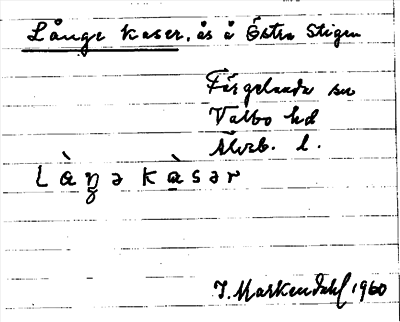 Långe kaser, ås å Östra Stigen
Färgelanda sn
Valbo hd
Älvsb. l.
Làŋə kàsər
I. Markendahl 1960